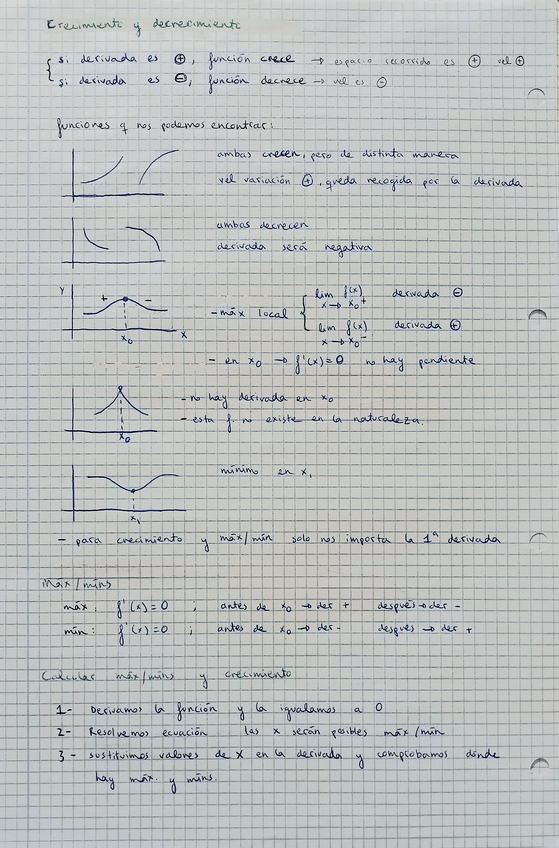 Crecimiento y decrecimiento
si derivada es ⊕, función crece → espacio recorrido es ⊕ vel ⊕
si derivada es ⊖, función decrece → vel es ⊖
funciones q nos podemos encontrar:
ambas crecen, pero de distinta manera
vel variación ⊕, queda recogida por la derivada
ambas decrecen
derivada será negativa
y + - x₀ x
- máx local
lim f(x) x→x₀⁺ derivada ⊖
lim f(x) x→x₀⁻ derivada ⊕
- en x₀ → f'(x)=0 no hay pendiente
x₀
- no hay derivada en x₀
- esta f. no existe en la naturaleza.
x₁
mínimo en x₁
- para crecimiento y máx/mín solo nos importa la 1ª derivada
Máx/mins
máx: f'(x)=0 ; antes de x₀ → der + después → der -
mín: f'(x)=0 ; antes de x₀ → der - después → der +
Calcular máx/mins y crecimiento
1- Derivamos la función y la igualamos a 0
2- Resolvemos ecuación las x serán posibles máx/mín
3- sustituimos valores de x en la derivada y comprobamos dónde
hay máx. y mins.